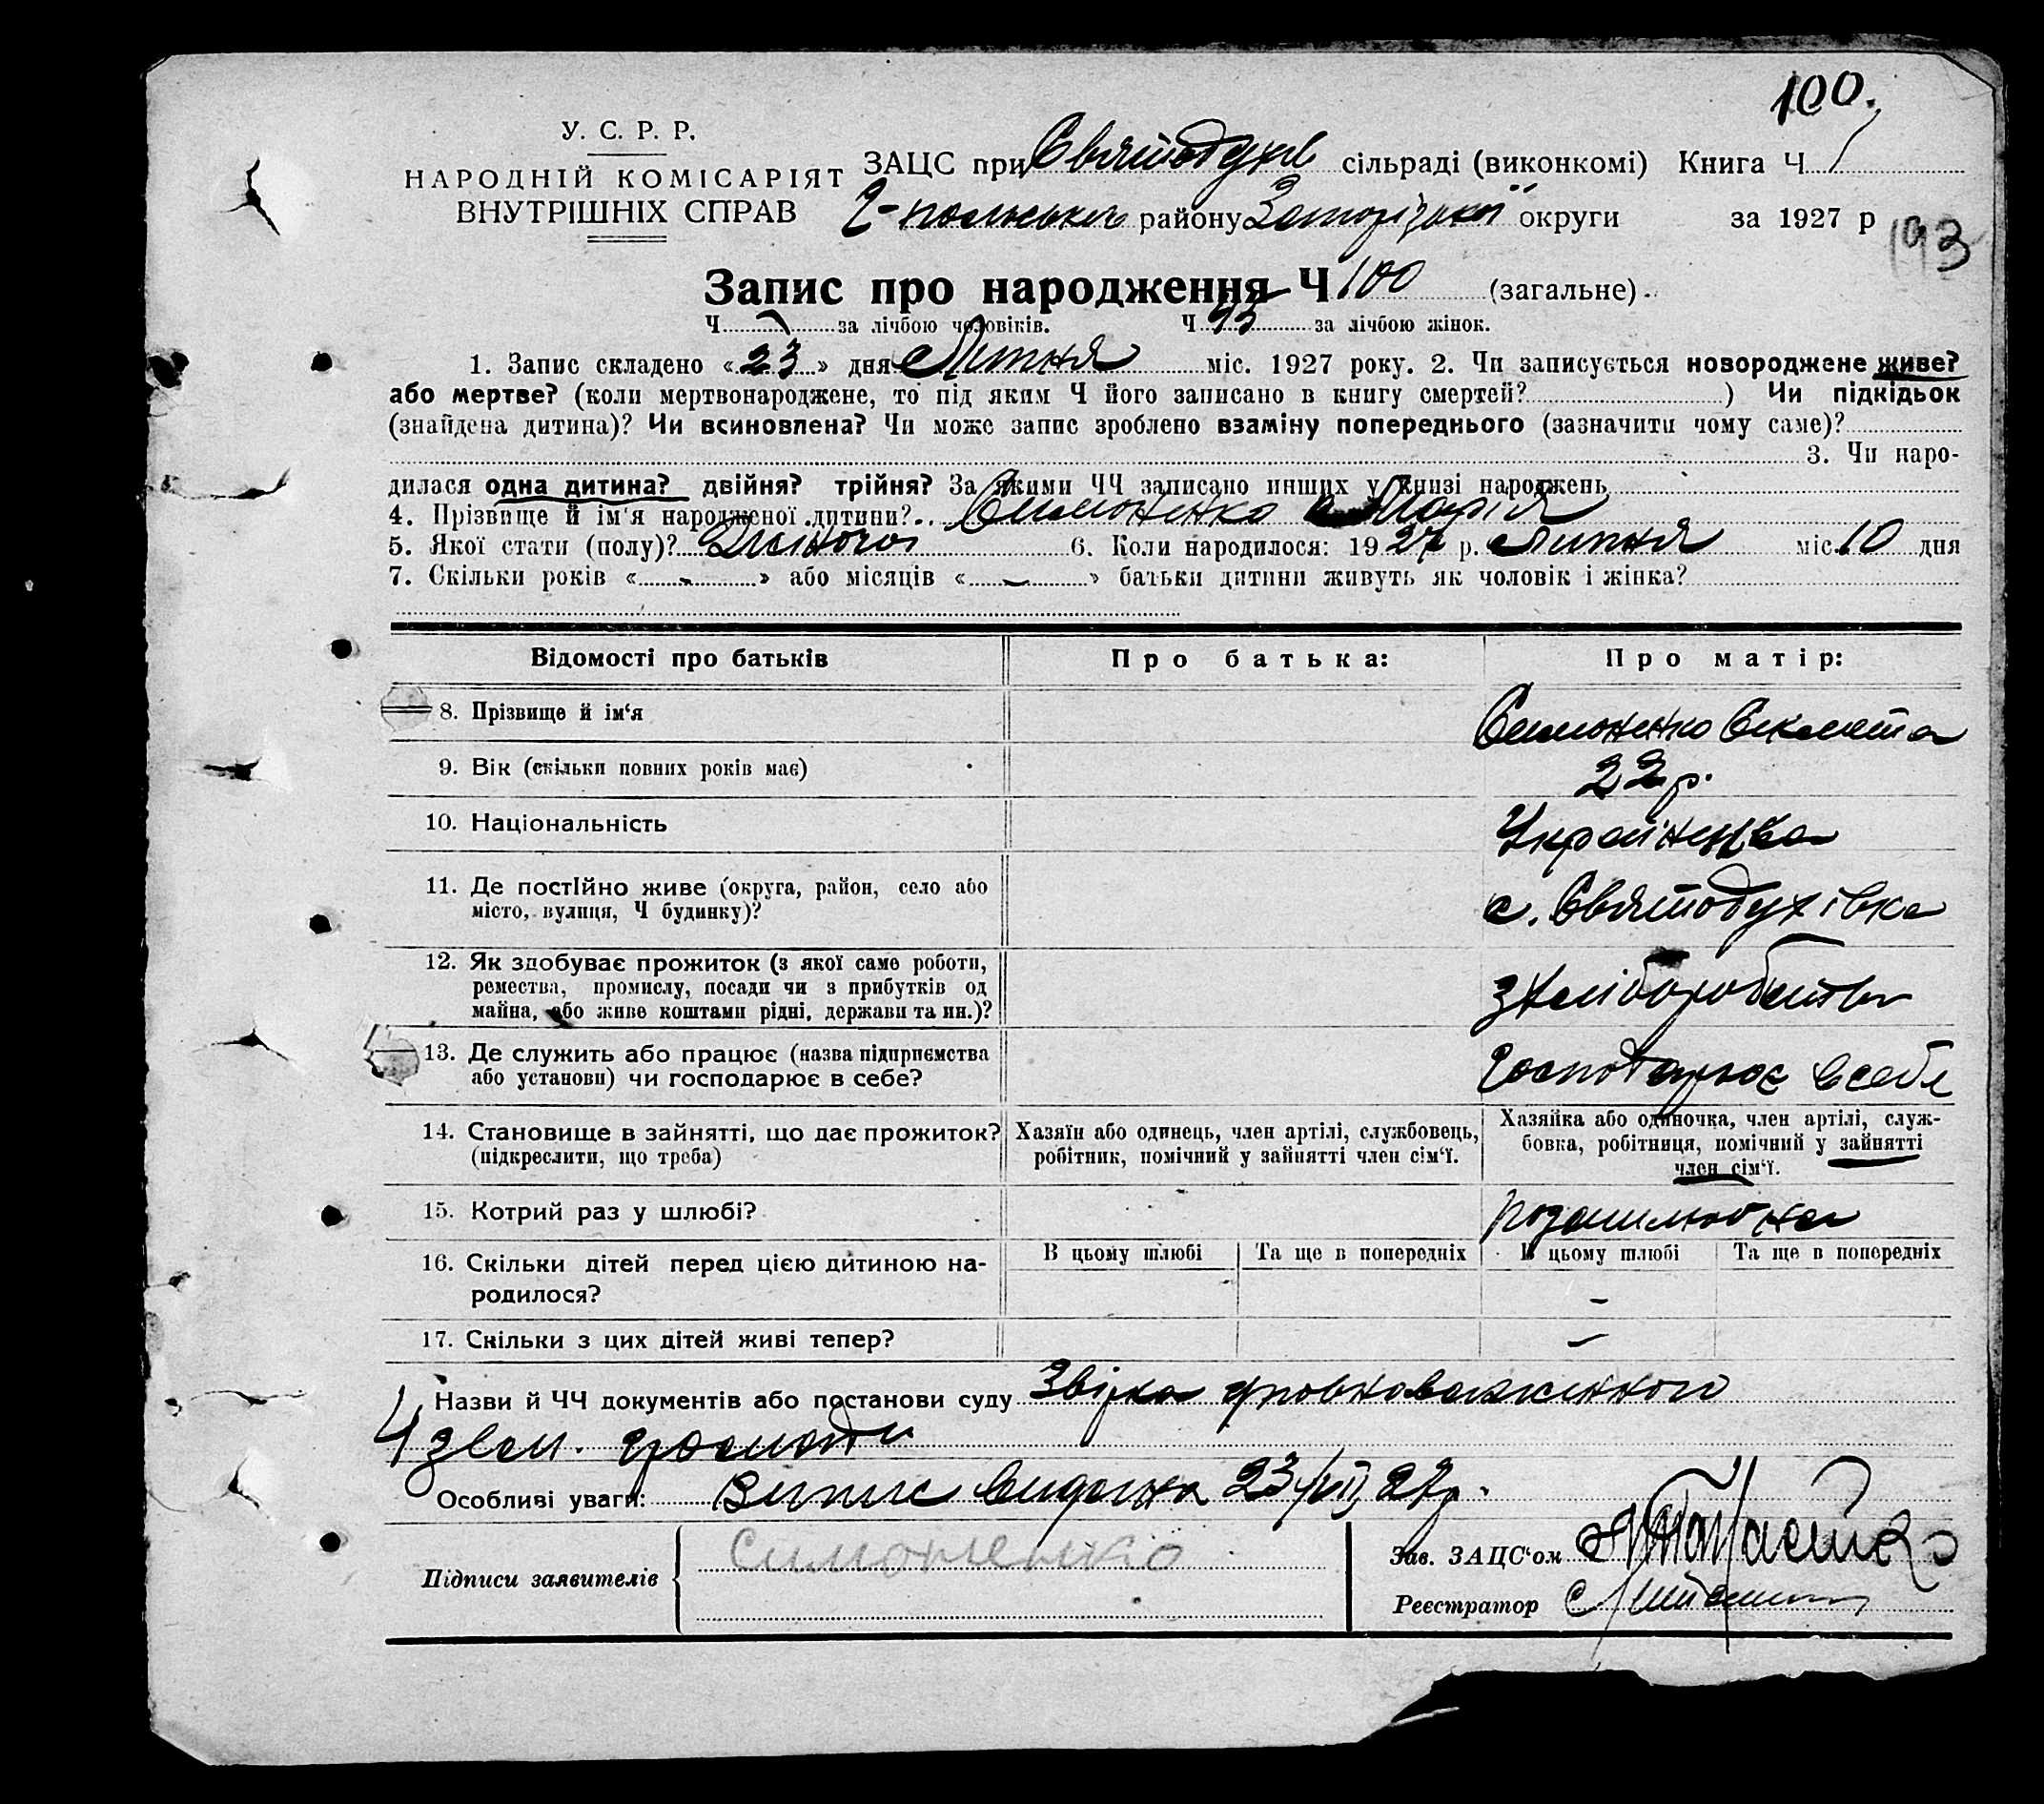 100.
У. С. Р. Р.
НАРОДНІЙ КОМІСАРІЯТ
ВНУТРІШНІХ СПРАВ
ЗАЦС при Святодухів сільраді (виконкомі) Книга Ч 1
району Запорізької округи за 1927 р
193
Запис про народження Ч 100 (загальне)
Ч за лічбою чоловіків. Ч за лічбою жінок.
1. Запис складено «23» дня Липня міс. 1927 року. 2. Чи записується новороджене живе?
або мертве? (коли мертвонароджене, то під яким Ч його записано в книгу смертей? ) Чи підкідьок
(знайдена дитина)? Чи всиновлена? Чи може запис зроблено взаміну попереднього (зазначити чому саме)?
3. Чи наро-
дилася одна дитина? двійня? трійня? За якими ЧЧ записано инших у книзі народжень
4. Прізвище й ім'я народженої дитини? Симоненко Марія
5. Якої стати (полу)? Жіночої 6. Коли народилося: 1927 р. Липня міс. 10 дня
7. Скільки років « - » або місяців « - » батьки дитини живуть як чоловік і жінка?
Відомості про батьків Про батька: Про матір:
8. Прізвище й ім'я Симоненко
9. Вік (скільки повних років має) 22 р.
10. Національність Українка
11. Де постійно живе (округа, район, село або
місто, вулиця, Ч будинку)? с. Святодухівка
12. Як здобуває прожиток (з якої саме роботи,
ремества, промислу, посади чи з прибутків од
майна, або живе коштами рідні, держави та ин.)? з хліборобства
13. Де служить або працює (назва підприємства
або установи) чи господарює в себе? Господарює в себе
14. Становище в зайнятті, що дає прожиток?
(підкреслити, що треба)
Хазяїн або одинець, член артілі, службовець,
робітник, помічний у зайнятті член сім'ї.
Хазяйка або одиночка, член артілі, служ-
бовка, робітниця, помічний у зайнятті
член сім'ї.
15. Котрий раз у шлюбі? позашлюбна
16. Скільки дітей перед цією дитиною на-
родилося?
В цьому шлюбі Та ще в попередніх В цьому шлюбі Та ще в попередніх
-
17. Скільки з цих дітей живі тепер? -
Назви й ЧЧ документів або постанови суду Звірка уповноваженного
4 зем. громади
Особливі уваги: Випис видана 23/VII 27 р.
Підписи заявителів Симоненко
Зав. ЗАЦС'ом
Реєстратор